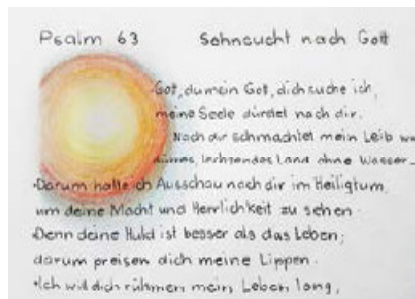 Psalm 63 Sehnsucht nach Gott
Got, du mein Got, dich suche ich,
meine Seele dürstet nach dir.
Nach dir schmachtet mein Leib
dürres, lechzendes Land ohne Wasser.
Darum halte ich Ausschau nach dir im Heiligtum,
um deine Macht und Herrlichkeit zu sehen.
Denn deine Huld ist besser als das Leben;
darum preisen dich meine Lippen.
Ich will dich rühmen mein Leben lang,